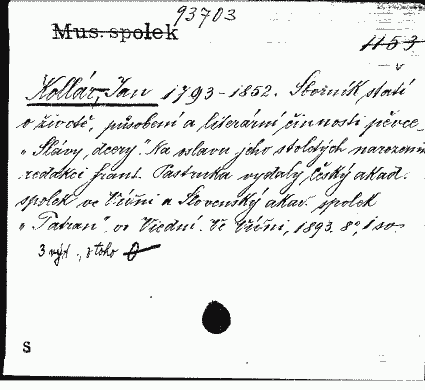 93703
Mus. spolek
1153
Kollár, Jan 1793-1852. Sborník statí
o životě, působení a literární činnosti pěvce
"Slávy dcery". Na oslavu jeho stoletých narozenin
redakcí Frant. Pastrnka vydaly Český akad.
spolek ve Vídni a Slovenský akad. spolek
"Tatran" ve Viedni. Ve Vídni, 1893. 8°, 1 sv.
3 výt., z toho
S